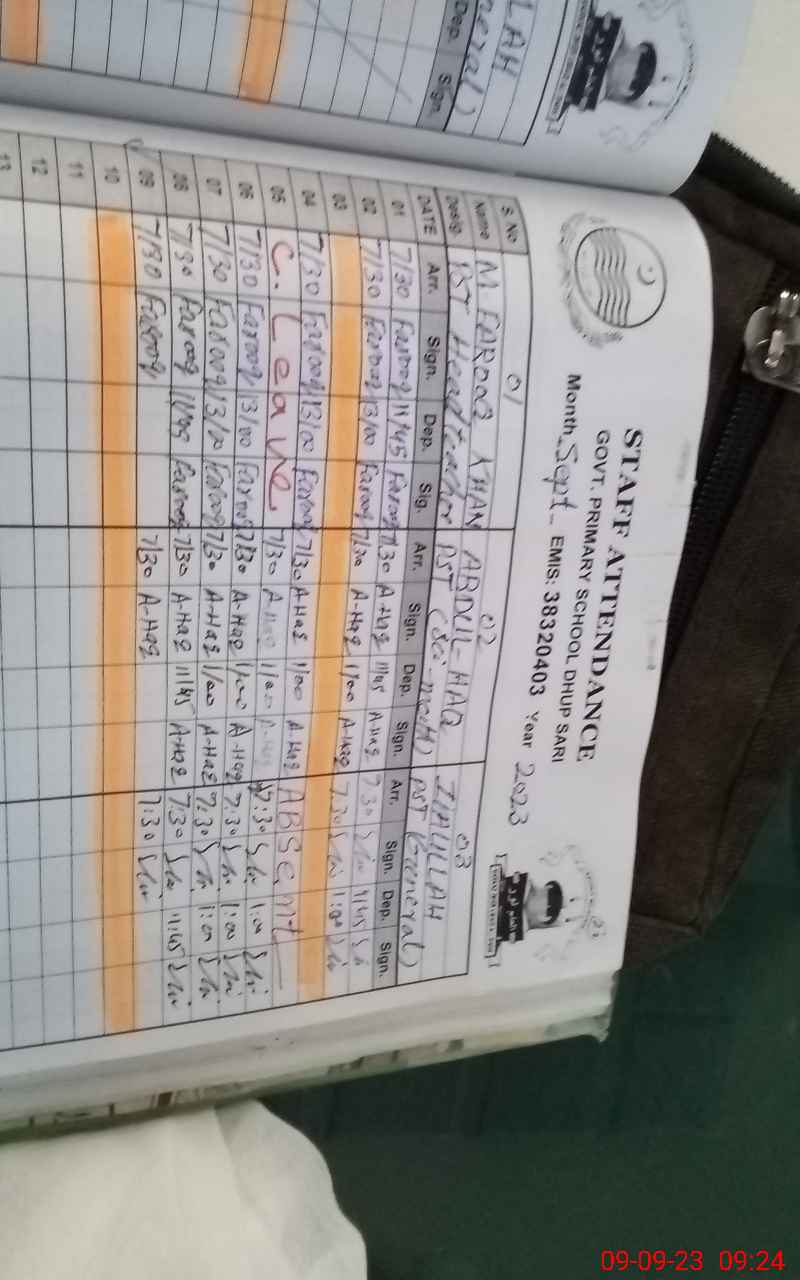 LAH
neral)
Dep. Sign.
STAFF ATTENDANCE
GOVT. PRIMARY SCHOOL DHUP SARI
Month Sept- EMIS: 38320403 Year 2023
S.No 01 02 03
Name M. FAROOQ KHAN ABDUL-HAQ
Desig. PST Headteacher PST (Sci-math) PST (General)
DATE Arr. Sign. Dep. Sig. Arr. Sign. Dep. Sign. Arr. Sign. Dep. Sign.
01 7/30 Farooq 11/45 Farooq 7/30 A-Haq 11/45 A-Haq 7:30 11/45
02 7/30 Farooq 13/00 Farooq 7/30 A-Haq 1/00 A-Haq 7:30 1:00
03
04 7/30 Farooq 13/00 Farooq 7/30 A-Haq 1/00 A-Haq ABSent
05 C. Leave 7/30 A-Haq 1/00 A-Haq 7:30 1:00
06 7/30 Farooq 13/00 Farooq 7/30 A-Haq 1/00 A-Haq 7:30 1:00
07 7/30 Farooq 13/00 Farooq 7/30 A-Haq 1/00 A-Haq 7:30 1:00
08 7/30 Farooq 11/45 Farooq 7/30 A-Haq 11/45 A-Haq 7:30 11:45
09 7/30 Farooq 7/30 A-Haq 7:30
10
11
12
13
09-09-23 09:24